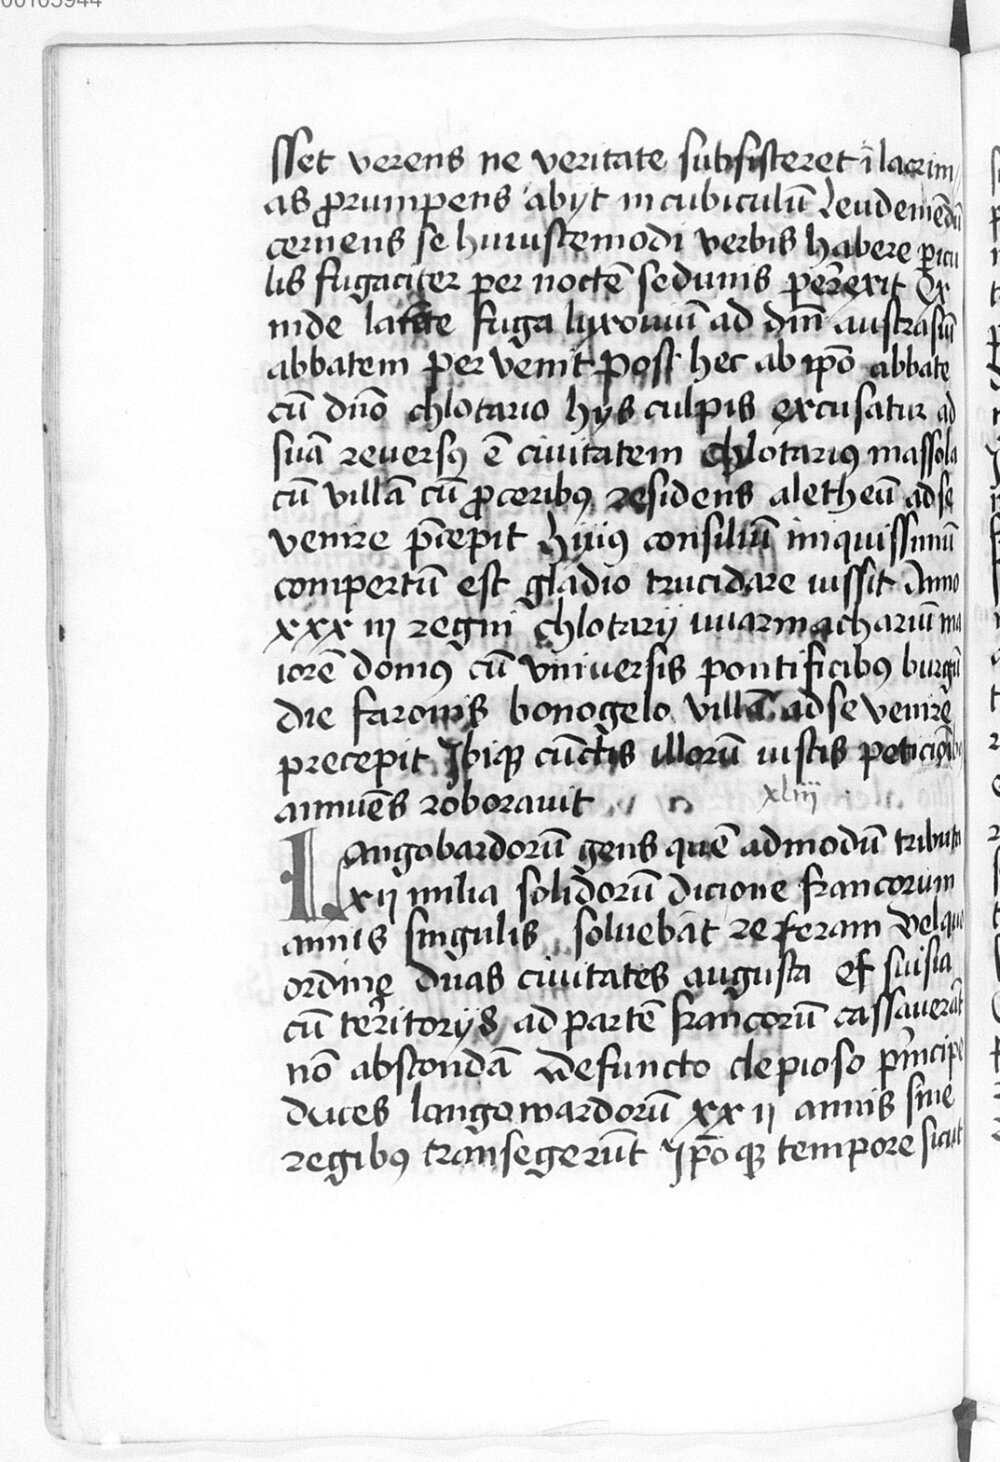 00105944
sset verens ne veritate subsisteret ī lacrim
as ꝓrumpens abijt in cubiculū Leudemēdū
cernens se huiuscemodi verbis habere ꝑicu
lis fugaciter per noctē sedunis perrexit Ex
inde latēte fuga luxouiū ad dm̄ austrasiū
abbatem pervenit Post hec ab ip̄o abbate
cū dn̄o chlotario hijs culpis excusatur ad
suā reversꝰ ē civitatem Chlotariꝰ massola
cū villā cū ꝓceribꝰ residens aletheū ad se
venire p̄cepit Huiꝰ consiliū iniquissimū
compertū est gladio trucidare iussit Anno
xxx iij regni chlotarij vuarnacharium ma
iorē domꝰ cū vniversis pontificibꝰ burgū
die faronis bonogelo villā ad se venire
precepit Ibiqꝫ cūctis illorū iustis peticiōibꝰ
annuēs roboravit xliiij
Langobardorū gens quē admodū tributa
xij milia solidorū dicione francorum
annis singulis soluebāt referam vel quo
ordine duas civitates augusta et suisia
cū territorijs ad partē francorū cassaverāt
nō abscondā Defuncto clepioso p̄ncipe
duces langowardorū xx ij annis sine
regibꝰ transegerūt Ip̄o qꝫ tempore sicut